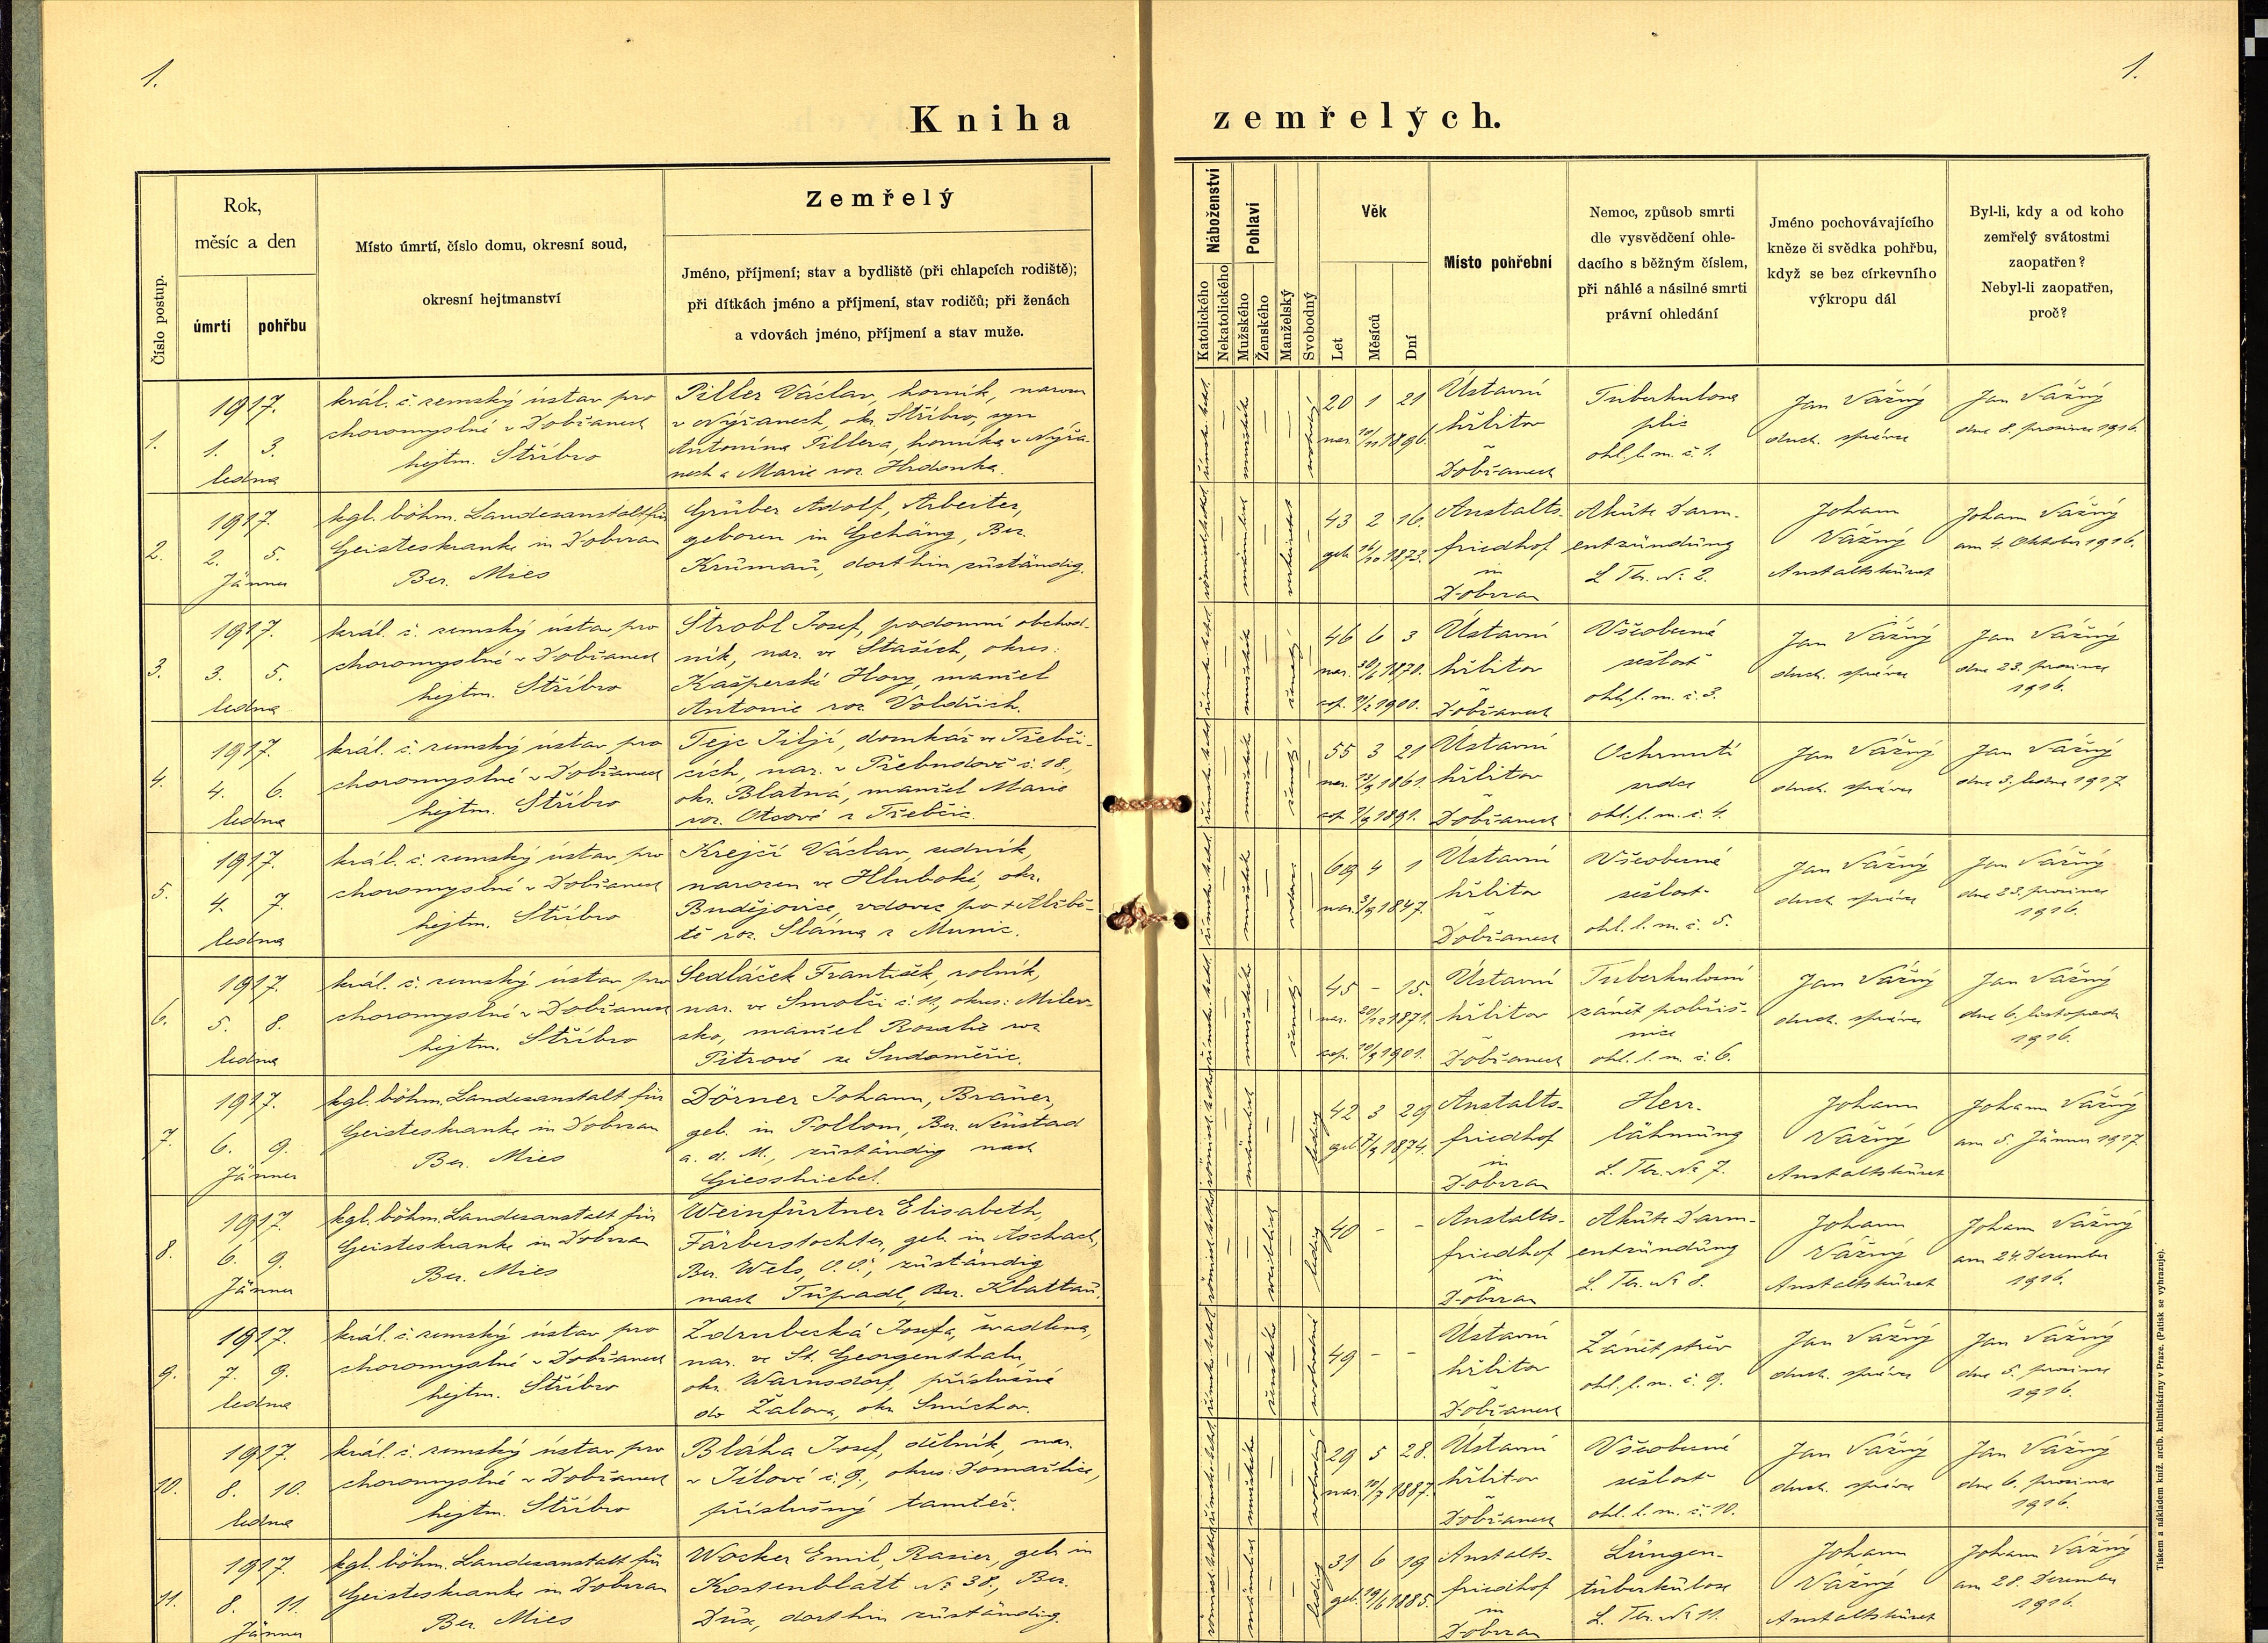 1.
1.
Kniha zemřelých.
Číslo postup.
Rok,
měsíc a den
úmrtí
pohřbu
Místo úmrtí, číslo domu, okresní soud,
okresní hejtmanství
Zemřelý
Jméno, příjmení; stav a bydliště (při chlapcích rodiště);
při dítkách jméno a příjmení, stav rodičů; při ženách
a vdovách jméno, příjmení a stav muže.
Náboženství
Katolického
Nekatolického
Pohlaví
Mužského
Ženského
Manželský
Svobodný
Věk
Let
Měsíců
Dní
Místo pohřební
Nemoc, způsob smrti
dle vysvědčení ohle-
dacího s běžným číslem,
při náhlé a násilné smrti
právní ohledání
Jméno pochovávajícího
kněze či svědka pohřbu,
když se bez církevního
výkropu dál
Byl-li, kdy a od koho
zemřelý svátostmi
zaopatřen?
Nebyl-li zaopatřen,
proč?
1.
1917.
1. 3.
ledna
král. č. zemský ústav pro
choromyslné v Dobřanech
hejtm. Stříbro
Piller Václav, horník, narozen
v Nýřanech, okr. Stříbro, syn
Antonína Pillera, horníka v Nýřa-
nech a Marie roz. Hrdonka.
mužské
svobodný
20 1 21
nar. 10/11 1896.
Ústavní
hřbitov
v
Dobřanech
Tuberkulosa
plic
ohl. l. m. č. 1.
Jan Vážný
duch. správce
Jan Vážný
dne 8. prosince 1916.
2.
1917.
2. 5.
Jänner
kgl. böhm. Landesanstalt für
Geisteskranke in Dobrzan
Bez. Mies
Grüber Adolf, Arbeiter,
geboren in Gehäng, Bez.
Krümaü, dorthin züständig.
männlich
verheiratet
43 2 16.
geb. 16/10 1873.
Anstalts-
friedhof
in
Dobrzan
Aküte Darm-
entzündüng
L. Th. No 2.
Johann
Vážný
Anstaltskürat
Johann Vážný
am 4. Oktober 1916.
3.
1917.
3. 5.
ledna
král. č. zemský ústav pro
choromyslné v Dobřanech
hejtm. Stříbro
Štrobl Josef, podomní obchod-
ník, nar. ve Staších, okres:
Kašperské Hory, manžel
Antonie roz. Voldřich.
mužské
ženatý
46 6 3
nar. 30/6 1870.
Ústavní
hřbitov
v
Dobřanech
Všeobecná
sešlost
ohl. l. m. č. 3.
Jan Vážný
duch. správce
Jan Vážný
dne 23. prosince
1916.
4.
1917.
4. 6.
ledna
král. č. zemský ústav pro
choromyslné v Dobřanech
hejtm. Stříbro
Tejc Jiljí, domkář ve Třebči-
cích, nar. v Přebudově č. 18.,
okr. Blatná, manžel Marie
roz. Otcové z Třebčic.
mužské
ženatý
55 3 21
1861.
1891.
Ústavní
hřbitov
v
Dobřanech
Ochrnutí
srdce
ohl. l. m. č. 4.
Jan Vážný
duch. správce
Jan Vážný
dne 3. ledna 1917
5.
1917.
4. 7.
ledna
král. č. zemský ústav pro
choromyslné v Dobřanech
hejtm. Stříbro
Krejčí Václav, zedník,
narozen ve Hluboké, okr.
Budějovice, vdovec po + Alžbě-
tě roz. Sláma z Munic.
mužské
vdovec
69 4 1
nar. 3/9 1847.
Ústavní
hřbitov
v
Dobřanech
Všeobecná
sešlost
ohl. l. m. č. 5.
Jan Vážný
duch. správce
Jan Vážný
dne 23. prosince
1916.
6.
1917.
5. 8.
ledna
král. č. zemský ústav pro
choromyslné v Dobřanech
hejtm. Stříbro
Sedláček František, rolník,
nar. ve Smolči č. 11, okres: Milev-
sko, manžel Rosalie roz
Pitrové ze Sudoměřic.
mužské
ženatý
45 - 15.
nar. 20/12 1871.
1901.
Ústavní
hřbitov
v
Dobřanech
Tuberkulosní
zánět pobřiš-
nice
ohl. l. m. č. 6.
Jan Vážný
duch. správce
Jan Vážný
dne 6. listopadu
1916.
7.
1917.
6. 9.
Jänner
kgl. böhm. Landesanstalt für
Geisteskranke in Dobrzan
Bez. Mies
Dörner Johann, Braüer,
geb. in Pollom, Bez. Neüstad
a. d. M., züständig nach
Giesshiebel.
männlich
ledig
42 3 29
geb. 7/9 1874.
Anstalts-
friedhof
in
Dobrzan
Herz-
lähmüng
L. Th. No 7.
Johann
Vážný
Anstaltskürat
Johann Vážný
am 5. Jänner 1917
8.
1917.
6. 9.
Jänner
kgl. böhm. Landesanstalt für
Geisteskranke in Dobrzan
Bez. Mies
Weinfürtner Elisabeth,
Färberstochter, geb. in Aschach,
Bez. Wels, O. Ö., züständig
nach Tüpadl, Bez. Klattaü.
weiblich
ledig
40 - -
Anstalts-
friedhof
in
Dobrzan
Aküte Darm-
entzündüng
L. Th. No 8.
Johann
Vážný
Anstaltskürat
Johann Vážný
am 24. Dezember
1916.
9.
1917.
7. 9.
ledna
král. č. zemský ústav pro
choromyslné v Dobřanech
hejtm. Stříbro
Zdrubecká Josefa, švadlena,
nar. ve St. Georgenthalu,
okr. Warnsdorf, příslušná
do Žalova, okr. Smíchov.
ženské
svobodná
49 - -
Ústavní
hřbitov
v
Dobřanech
Zánět střev
ohl. l. m. č. 9.
Jan Vážný
duch. správce
Jan Vážný
dne 5. prosince
1916.
10.
1917.
8. 10.
ledna
král. č. zemský ústav pro
choromyslné v Dobřanech
hejtm. Stříbro
Bláha Josef, dělník, nar.
v Jílové č. 9., okres: Domažlice,
příslušný tamtéž.
mužské
svobodný
29 5 28.
nar. 10/7 1887.
Ústavní
hřbitov
v
Dobřanech
Všeobecná
sešlost
ohl. l. m. č. 10.
Jan Vážný
duch. správce
Jan Vážný
dne 6. prosince
1916.
11.
1917.
8. 11.
Jänner
kgl. böhm. Landesanstalt für
Geisteskranke in Dobrzan
Bez. Mies
Wocker Emil, Rasier, geb. in
Kostenblatt No 38., Bez.
Düx, dorthin züständig.
männlich
ledig
31 6 19
geb. 19/6 1885.
Anstalts-
friedhof
in
Dobrzan
Lüngen-
tüberkülose
L. Th. No 11.
Johann
Vážný
Anstaltskürat
Johann Vážný
am 28. Dezember
1916.
Tiskem a nákladem kníž. arcib. knihtiskárny v Praze. (Patisk se vyhrazuje).